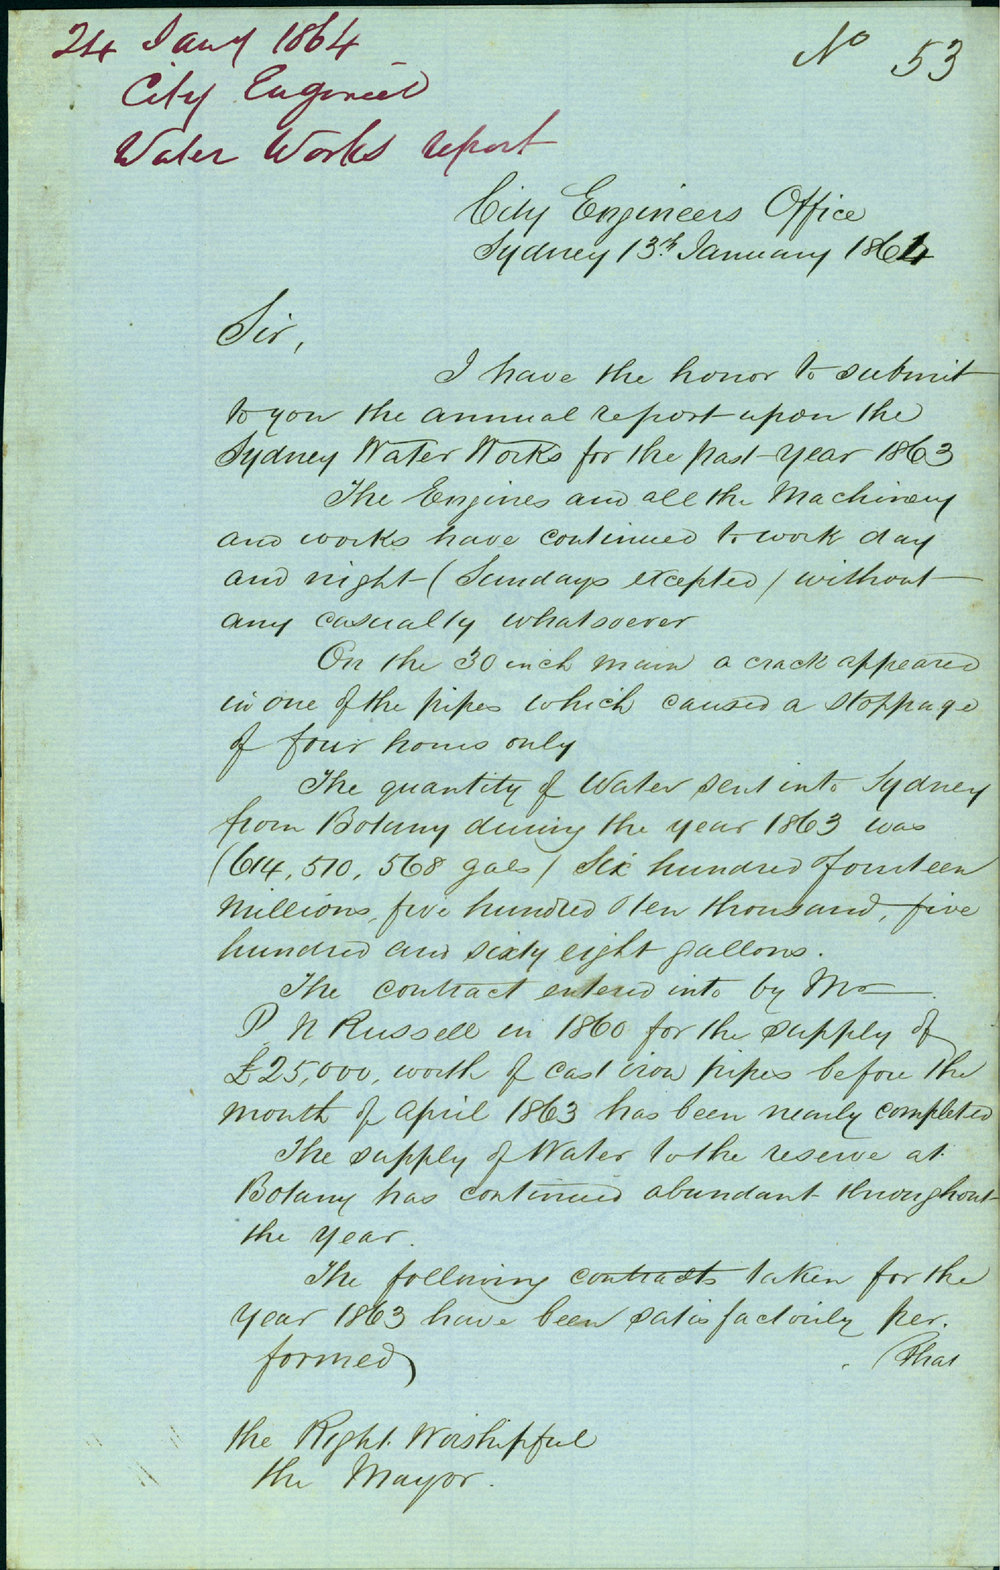 24 Jany 1864
No 53
City Engineer
Water Works report
City Engineers Office
Sydney 13th January 1864
Sir,
I have the honor to submit
to you the annual report upon the
Sydney Water Works for the past year 1863
The Engines and all the Machinery
and works have continued to work day
and night (Sundays excepted) without
any casualty whatsoever
On the 30 inch main a crack appeared
in one of the pipes which caused a stoppage
of four hours only
The quantity of Water sent into Sydney
from Botany during the year 1863 was
(614,510,568 gals) Six hundred & fourteen
Millions, five hundred & ten thousand, five
hundred and sixty eight gallons.
The contract entered into by Mr
P. N Russell in 1860 for the supply of
£25,000, worth of cast iron pipes before the
month of April 1863 has been nearly completed
The supply of Water to the reserve at
Botany has continued abundant throughout
the year.
The following contracts taken for the
year 1863 have been satisfactorily per.
formed
(That
the Right Worshipful
the Mayor.